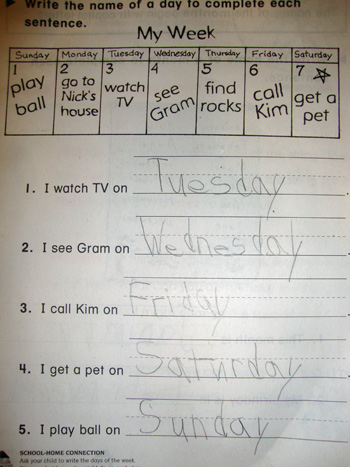 Write the name of a day to complete each
sentence.
My Week
Sunday Monday Tuesday Wednesday Thursday Friday Saturday
1 play ball
2 go to Nick's house
3 watch TV
4 see Gram
5 find rocks
6 call Kim
7 get a pet
1. I watch TV on Tuesday.
2. I see Gram on Wednesday.
3. I call Kim on Friday.
4. I get a pet on Saturday.
5. I play ball on Sunday
SCHOOL-HOME CONNECTION
Ask your child to write the days of the week